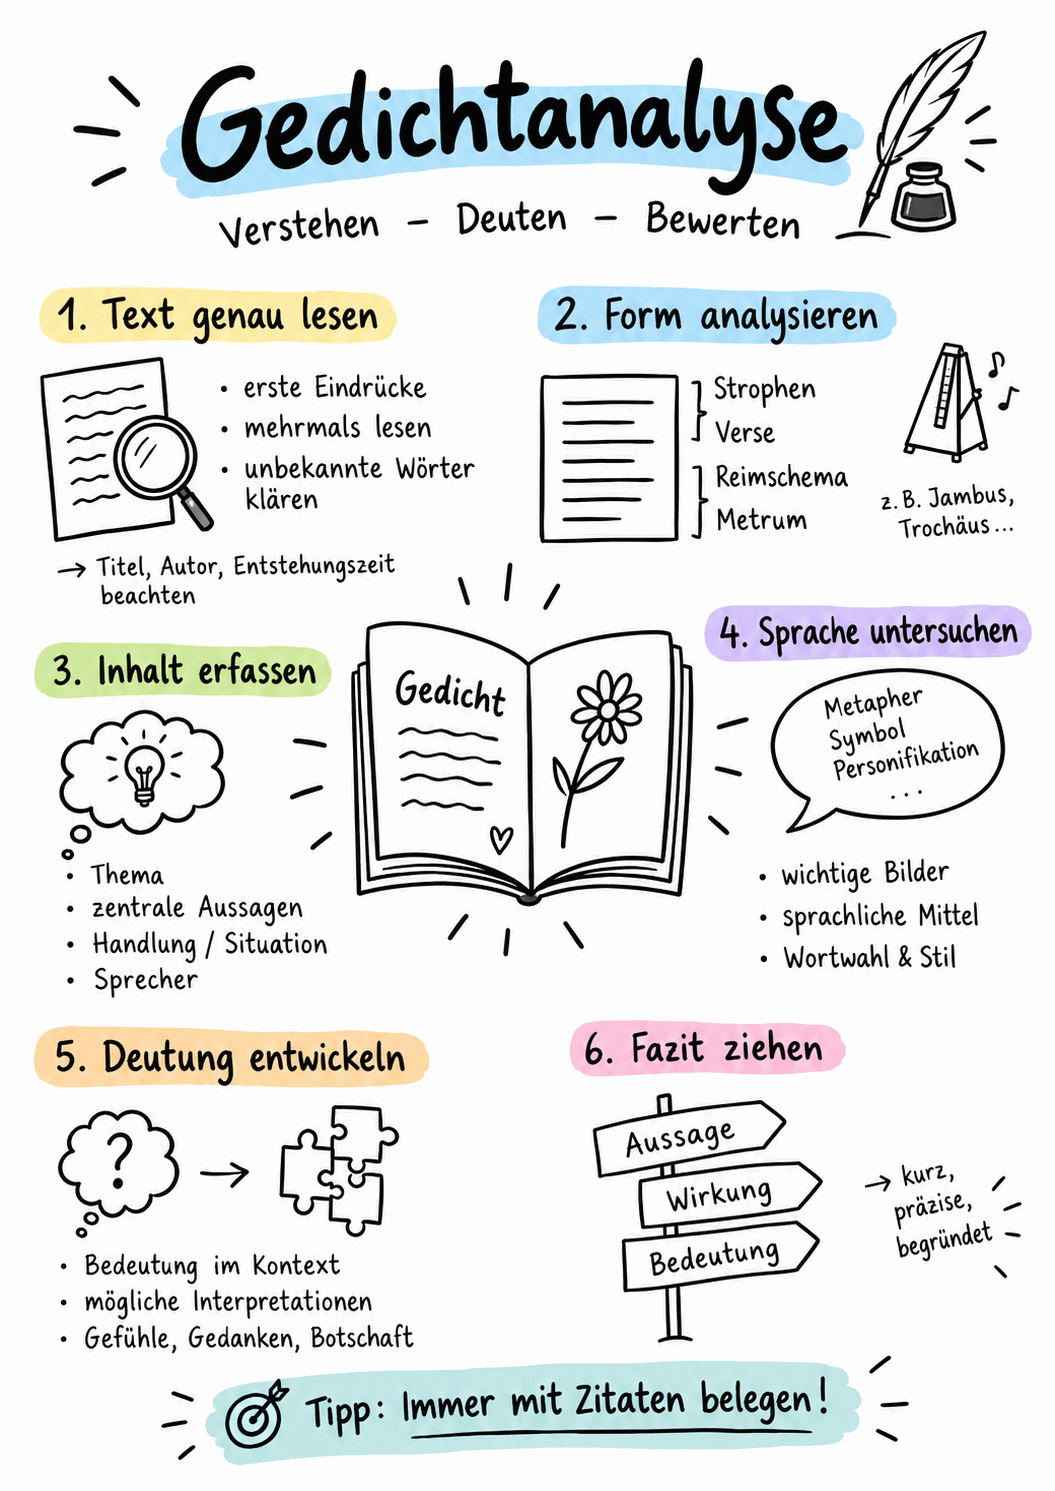 Gedichtanalyse
Verstehen – Deuten – Bewerten
1. Text genau lesen
• erste Eindrücke
• mehrmals lesen
• unbekannte Wörter
klären
→ Titel, Autor, Entstehungszeit
beachten
2. Form analysieren
Strophen
Verse
Reimschema
Metrum
z. B. Jambus,
Trochäus...
3. Inhalt erfassen
• Thema
• zentrale Aussagen
• Handlung / Situation
• Sprecher
Gedicht
4. Sprache untersuchen
Metapher
Symbol
Personifikation
...
• wichtige Bilder
• sprachliche Mittel
• Wortwahl & Stil
5. Deutung entwickeln
?
• Bedeutung im Kontext
• mögliche Interpretationen
• Gefühle, Gedanken, Botschaft
6. Fazit ziehen
Aussage
Wirkung
Bedeutung
→ kurz,
präzise,
begründet
Tipp: Immer mit Zitaten belegen!